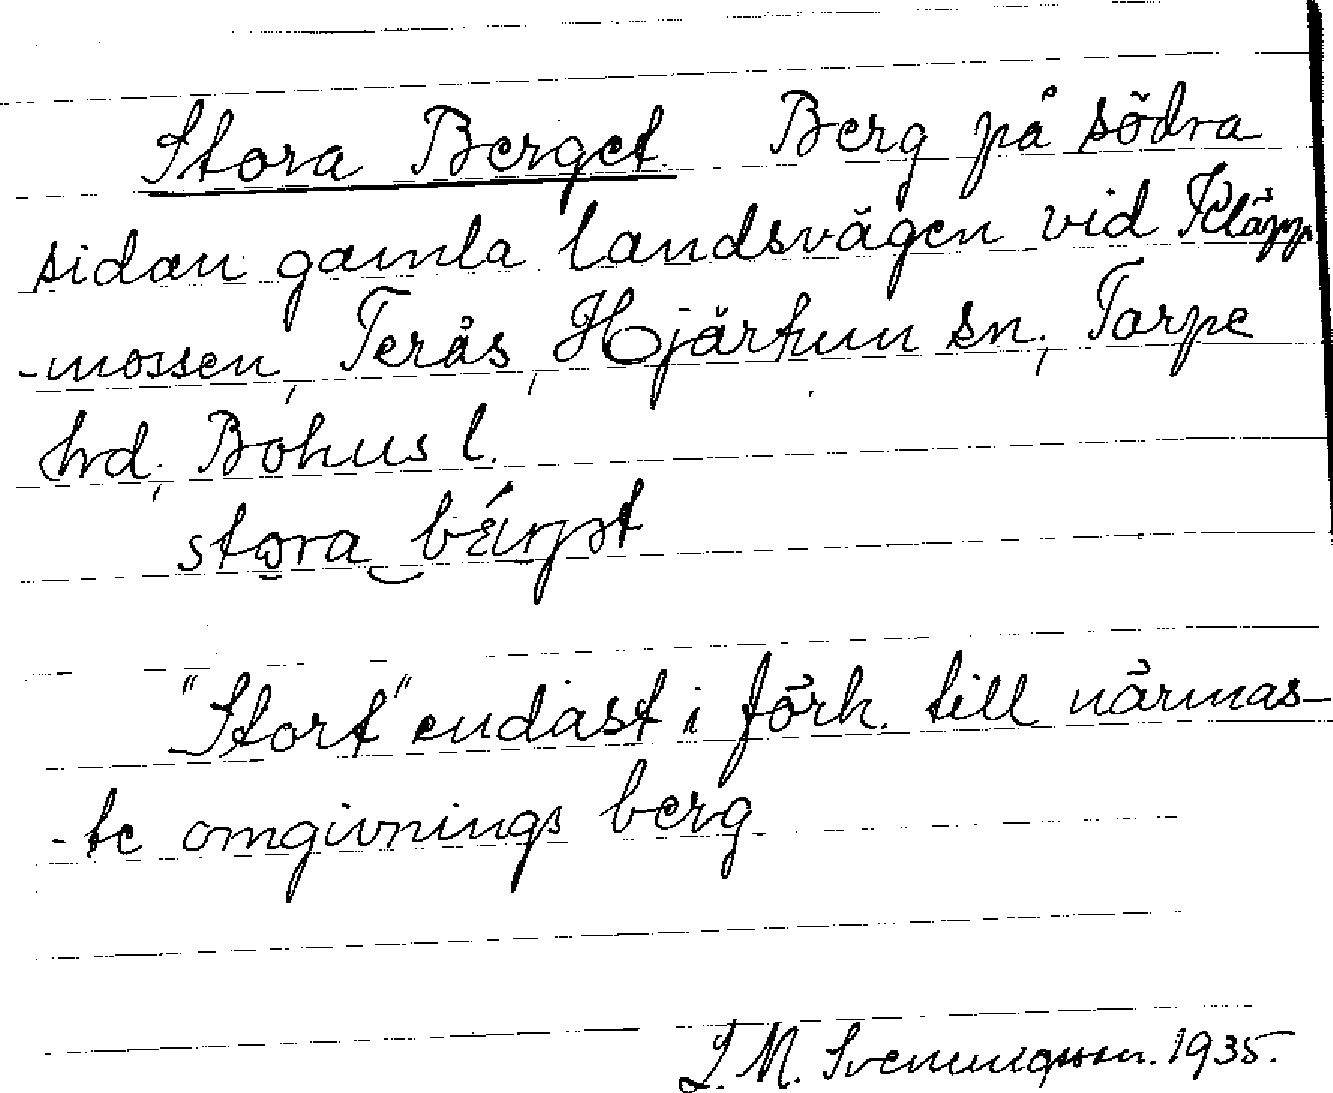 Stora Berget. Berg på södra
sidan gamla landsvägen vid Kläpp
-mossen, Terås, Hjärtum sn, Torpe
hrd, Bohus l.
stora
"Stort" endast i förh. till närmas-
-te omgivnings berg
L. M. 1935.